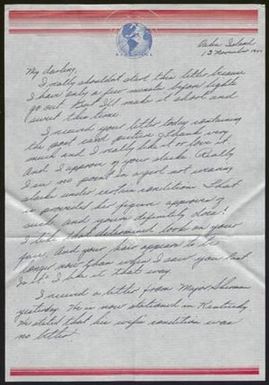 Island
13 November 1944
My darling,
I really shouldn't start this letter because
I have only a few minutes before lights
go out. But I'll make it short and
sweet this time.
I received your letter today containing
the most recent picture. Thanks very
much and I really like it or love it.
And I approve of your slacks. Really
I see no point in a girl not wearing
slacks under certain conditions. That
is provided her figure approves of
such and yours definitely does!
I like that determined look on your
face. And your hair appears to be
longer now than when I saw you last.
Is it? I like it that way.
I received a letter from Myer Sherman
yesterday. He is now stationed in Kentucky.
He stated that his wife condition was
no better.